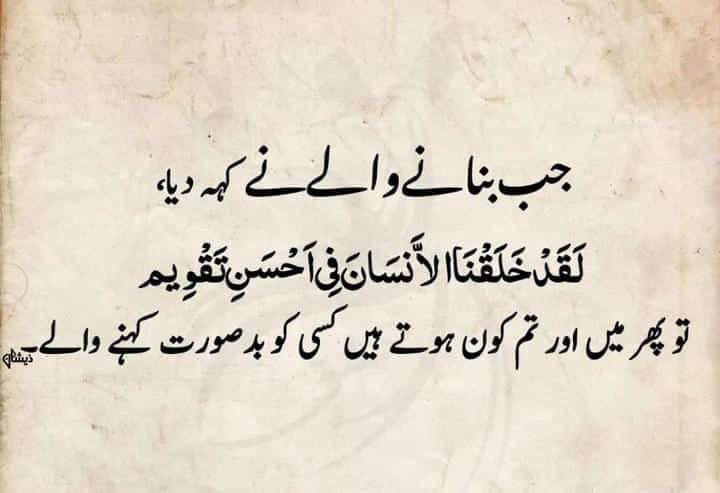 جب بنانے والے نے کہہ دیا،
لَقَدْ خَلَقْنَا الاَّنسَانَ فِی اَحْسَنِ تَقْوِیم
تو پھر میں اور تم کون ہوتے ہیں کسی کو بدصورت کہنے والے۔
ذیشان